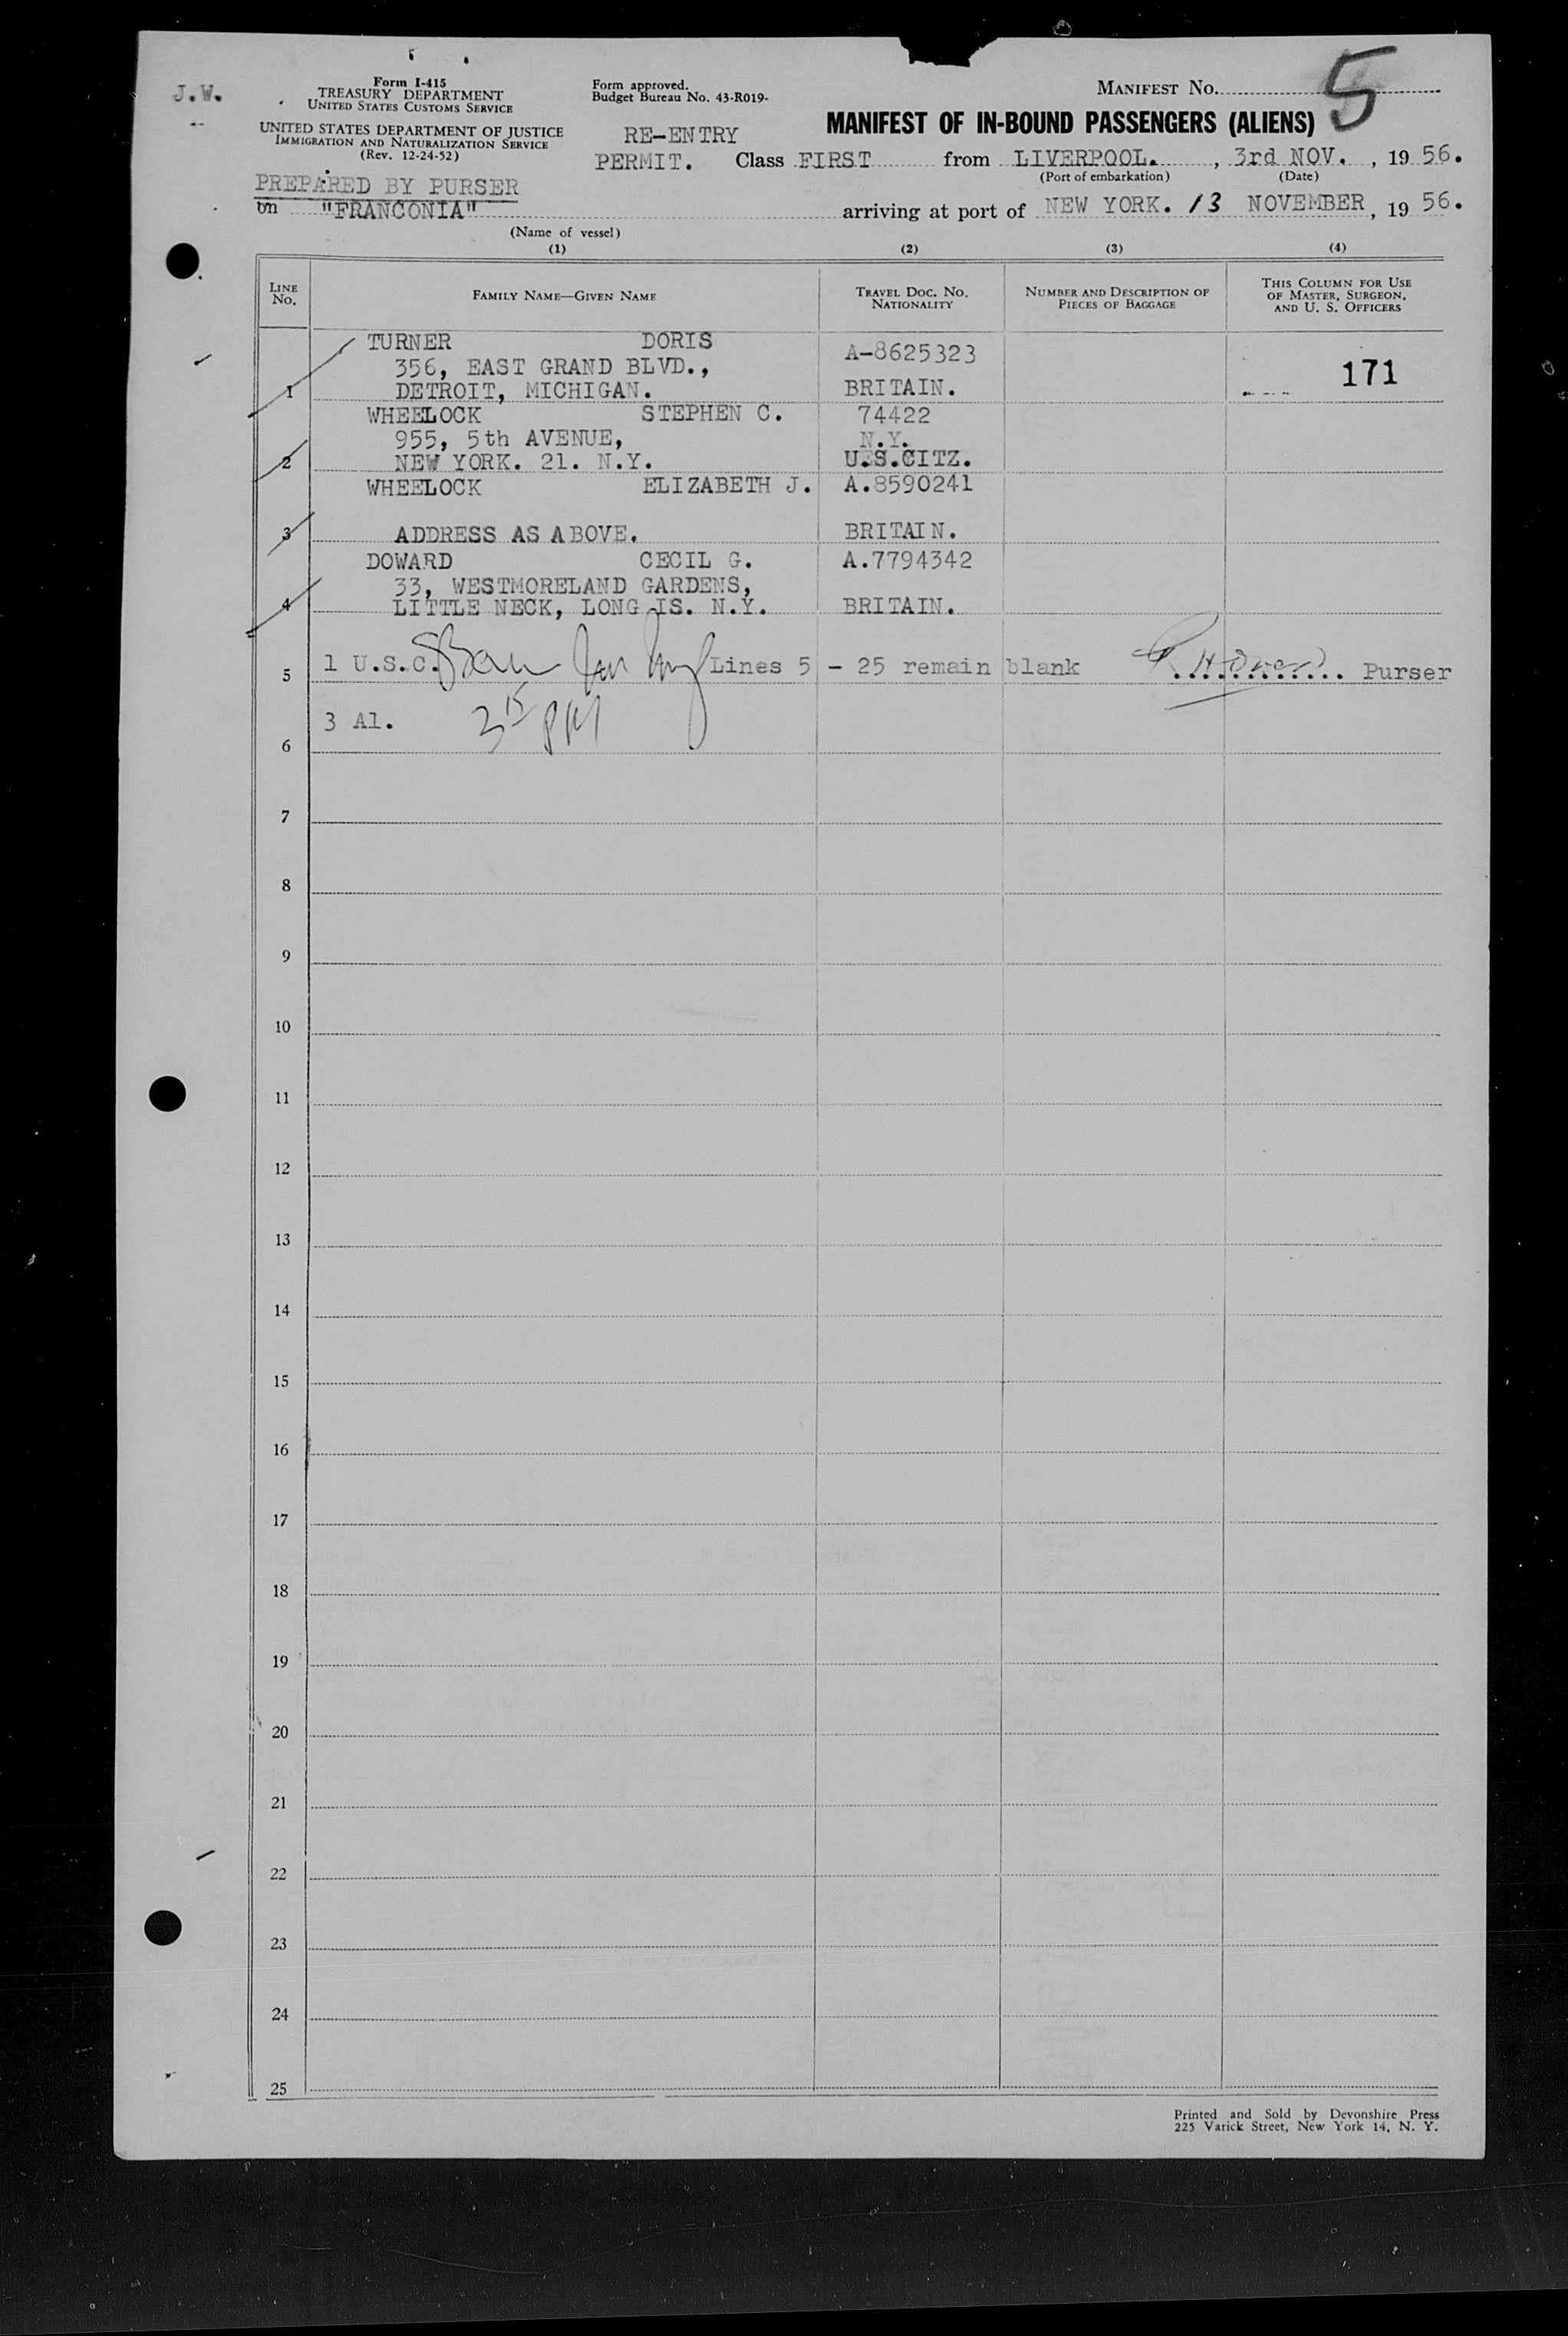 J.W.
Form I-415
TREASURY DEPARTMENT
UNITED STATES CUSTOMS SERVICE
UNITED STATES DEPARTMENT OF JUSTICE
IMMIGRATION AND NATURALIZATION SERVICE
(Rev. 12-24-52)
PREPARED BY PURSER
Form approved.
Budget Bureau No. 43-R019-
MANIFEST NO. 5
MANIFEST OF IN-BOUND PASSENGERS (ALIENS)
RE-ENTRY
PERMIT. Class FIRST from LIVERPOOL. , 3rd NOV. , 19 56.
(Port of embarkation) (Date)
on "FRANCONIA" arriving at port of NEW YORK. 13 NOVEMBER , 19 56.
(Name of vessel)
(1) (2) (3) (4)
LINE No. FAMILY NAME—GIVEN NAME TRAVEL DOC. NO. NATIONALITY NUMBER AND DESCRIPTION OF PIECES OF BAGGAGE THIS COLUMN FOR USE OF MASTER, SURGEON, AND U. S. OFFICERS
TURNER DORIS A-8625323
356, EAST GRAND BLVD., 171
1 DETROIT, MICHIGAN. BRITAIN.
WHEELOCK STEPHEN C. 74422
955, 5th AVENUE, N.Y.
2 NEW YORK. 21. N.Y. U.S.CITZ.
WHEELOCK ELIZABETH J. A.8590241
3 ADDRESS AS ABOVE. BRITAIN.
DOWARD CECIL G. A.7794342
33, WESTMORELAND GARDENS,
4 LITTLE NECK, LONG IS. N.Y. BRITAIN.
5 1 U.S.C. Lines 5 - 25 remain blank ............. Purser
6 3 Al. 3 15 PM
7
8
9
10
11
12
13
14
15
16
17
18
19
20
21
22
23
24
25
Printed and Sold by Devonshire Press
225 Varick Street, New York 14, N. Y.